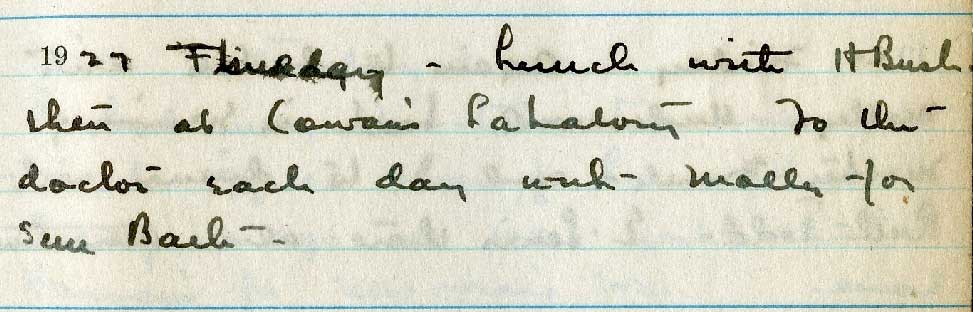 1927 - Lunch with H Bush.
then at Cowan's Labratory To the
doctor each day with Molly for
Sun Bath -